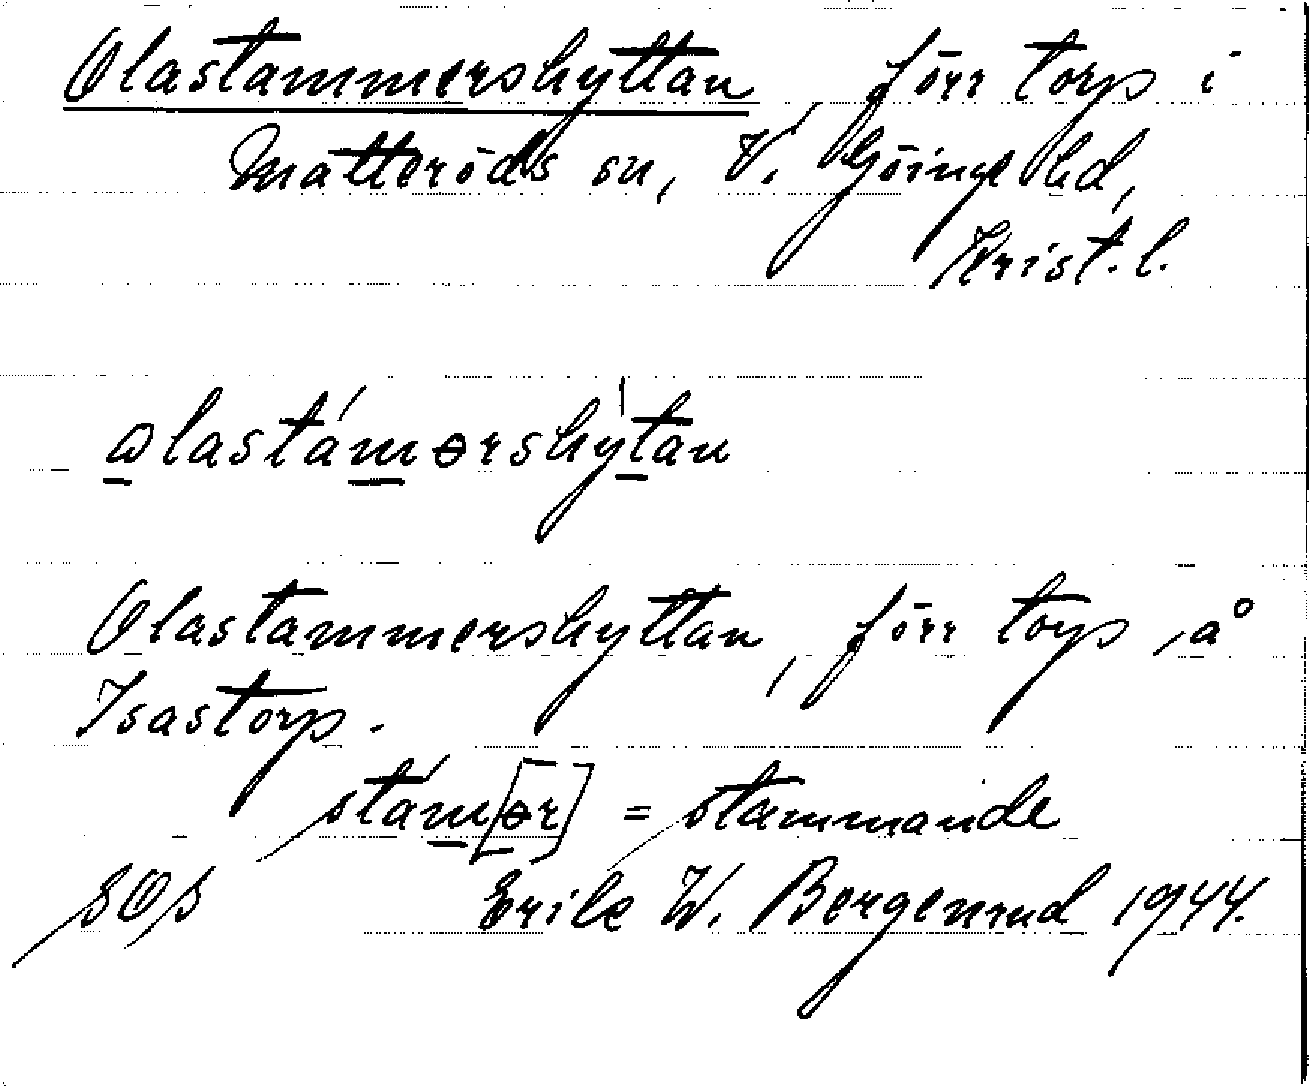 Olastammershyttan, förr torp i
Matteröds sn, V. Göinge hd,
Krist. l.
ɷlastámərshy̍tan
Olastammershyttan, förr torp på
Isastorp.
stám[ər] = stammande
SOS Erik W. Bergenrud 1944.